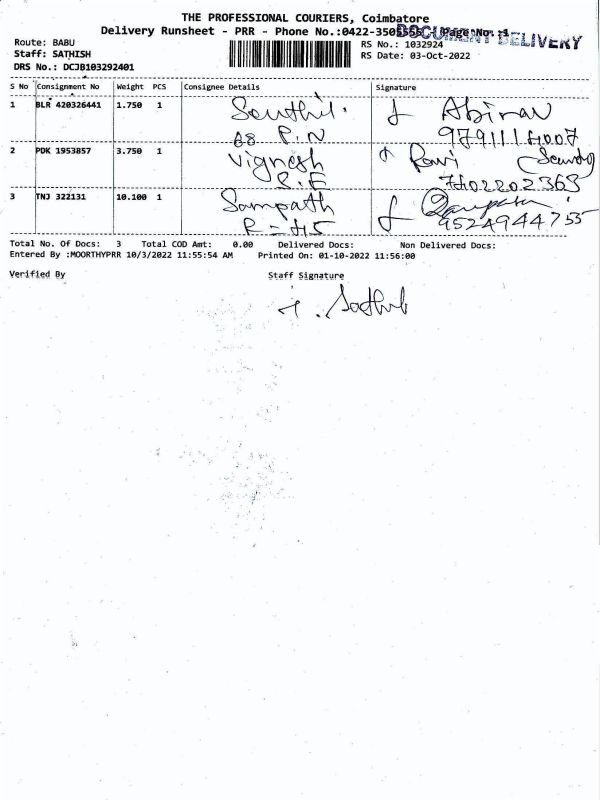 THE PROFESSIONAL COURIERS, Coimbatore
Delivery Runsheet - PRR - Phone No.:0422-350 Page No.:
DOCUMENT DELIVERY
Route: BABU
RS No.: 1032924
Staff: SATHISH
RS Date: 03-Oct-2022
DRS No.: DCJB103292401
S No Consignment No Weight PCS Consignee Details Signature
1 BLR 420326441 1.750 1 Senthil. Abinav
P.N 9791114007
2 PDK 1953857 3.750 1 Vignesh Ravi
S.F 7402202363
3 TNJ 322131 10.100 1 Sampath
R = 45 9524944755
Total No. Of Docs: 3 Total COD Amt: 0.00 Delivered Docs: Non Delivered Docs:
Entered By :MOORTHYPRR 10/3/2022 11:55:54 AM Printed On: 01-10-2022 11:56:00
Verified By Staff Signature